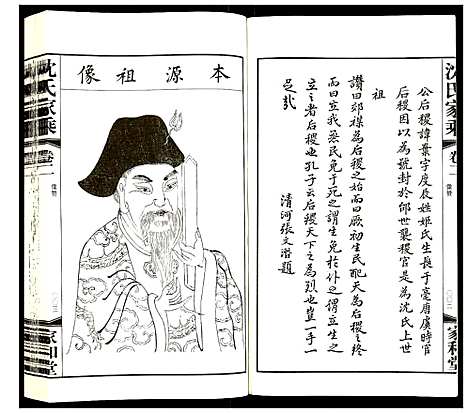 沈氏家乘
卷二
像贊
家和堂
公后稷諱棄字度辰姓姬氏生長于亳唐虞時官
后稷因以為號封於邰世襲稷官是為沈氏上世
祖
讚曰郊禖為后稷之始曰厥初生民配天為后稷之終
而曰立我烝民免于死之謂生免於仆之謂立生之
立之者后稷也孔子云后稷天下之為烈也豈一手一
足哉
清河張文潛題
本源祖像
沈氏家乘
卷二
像贊
家和堂